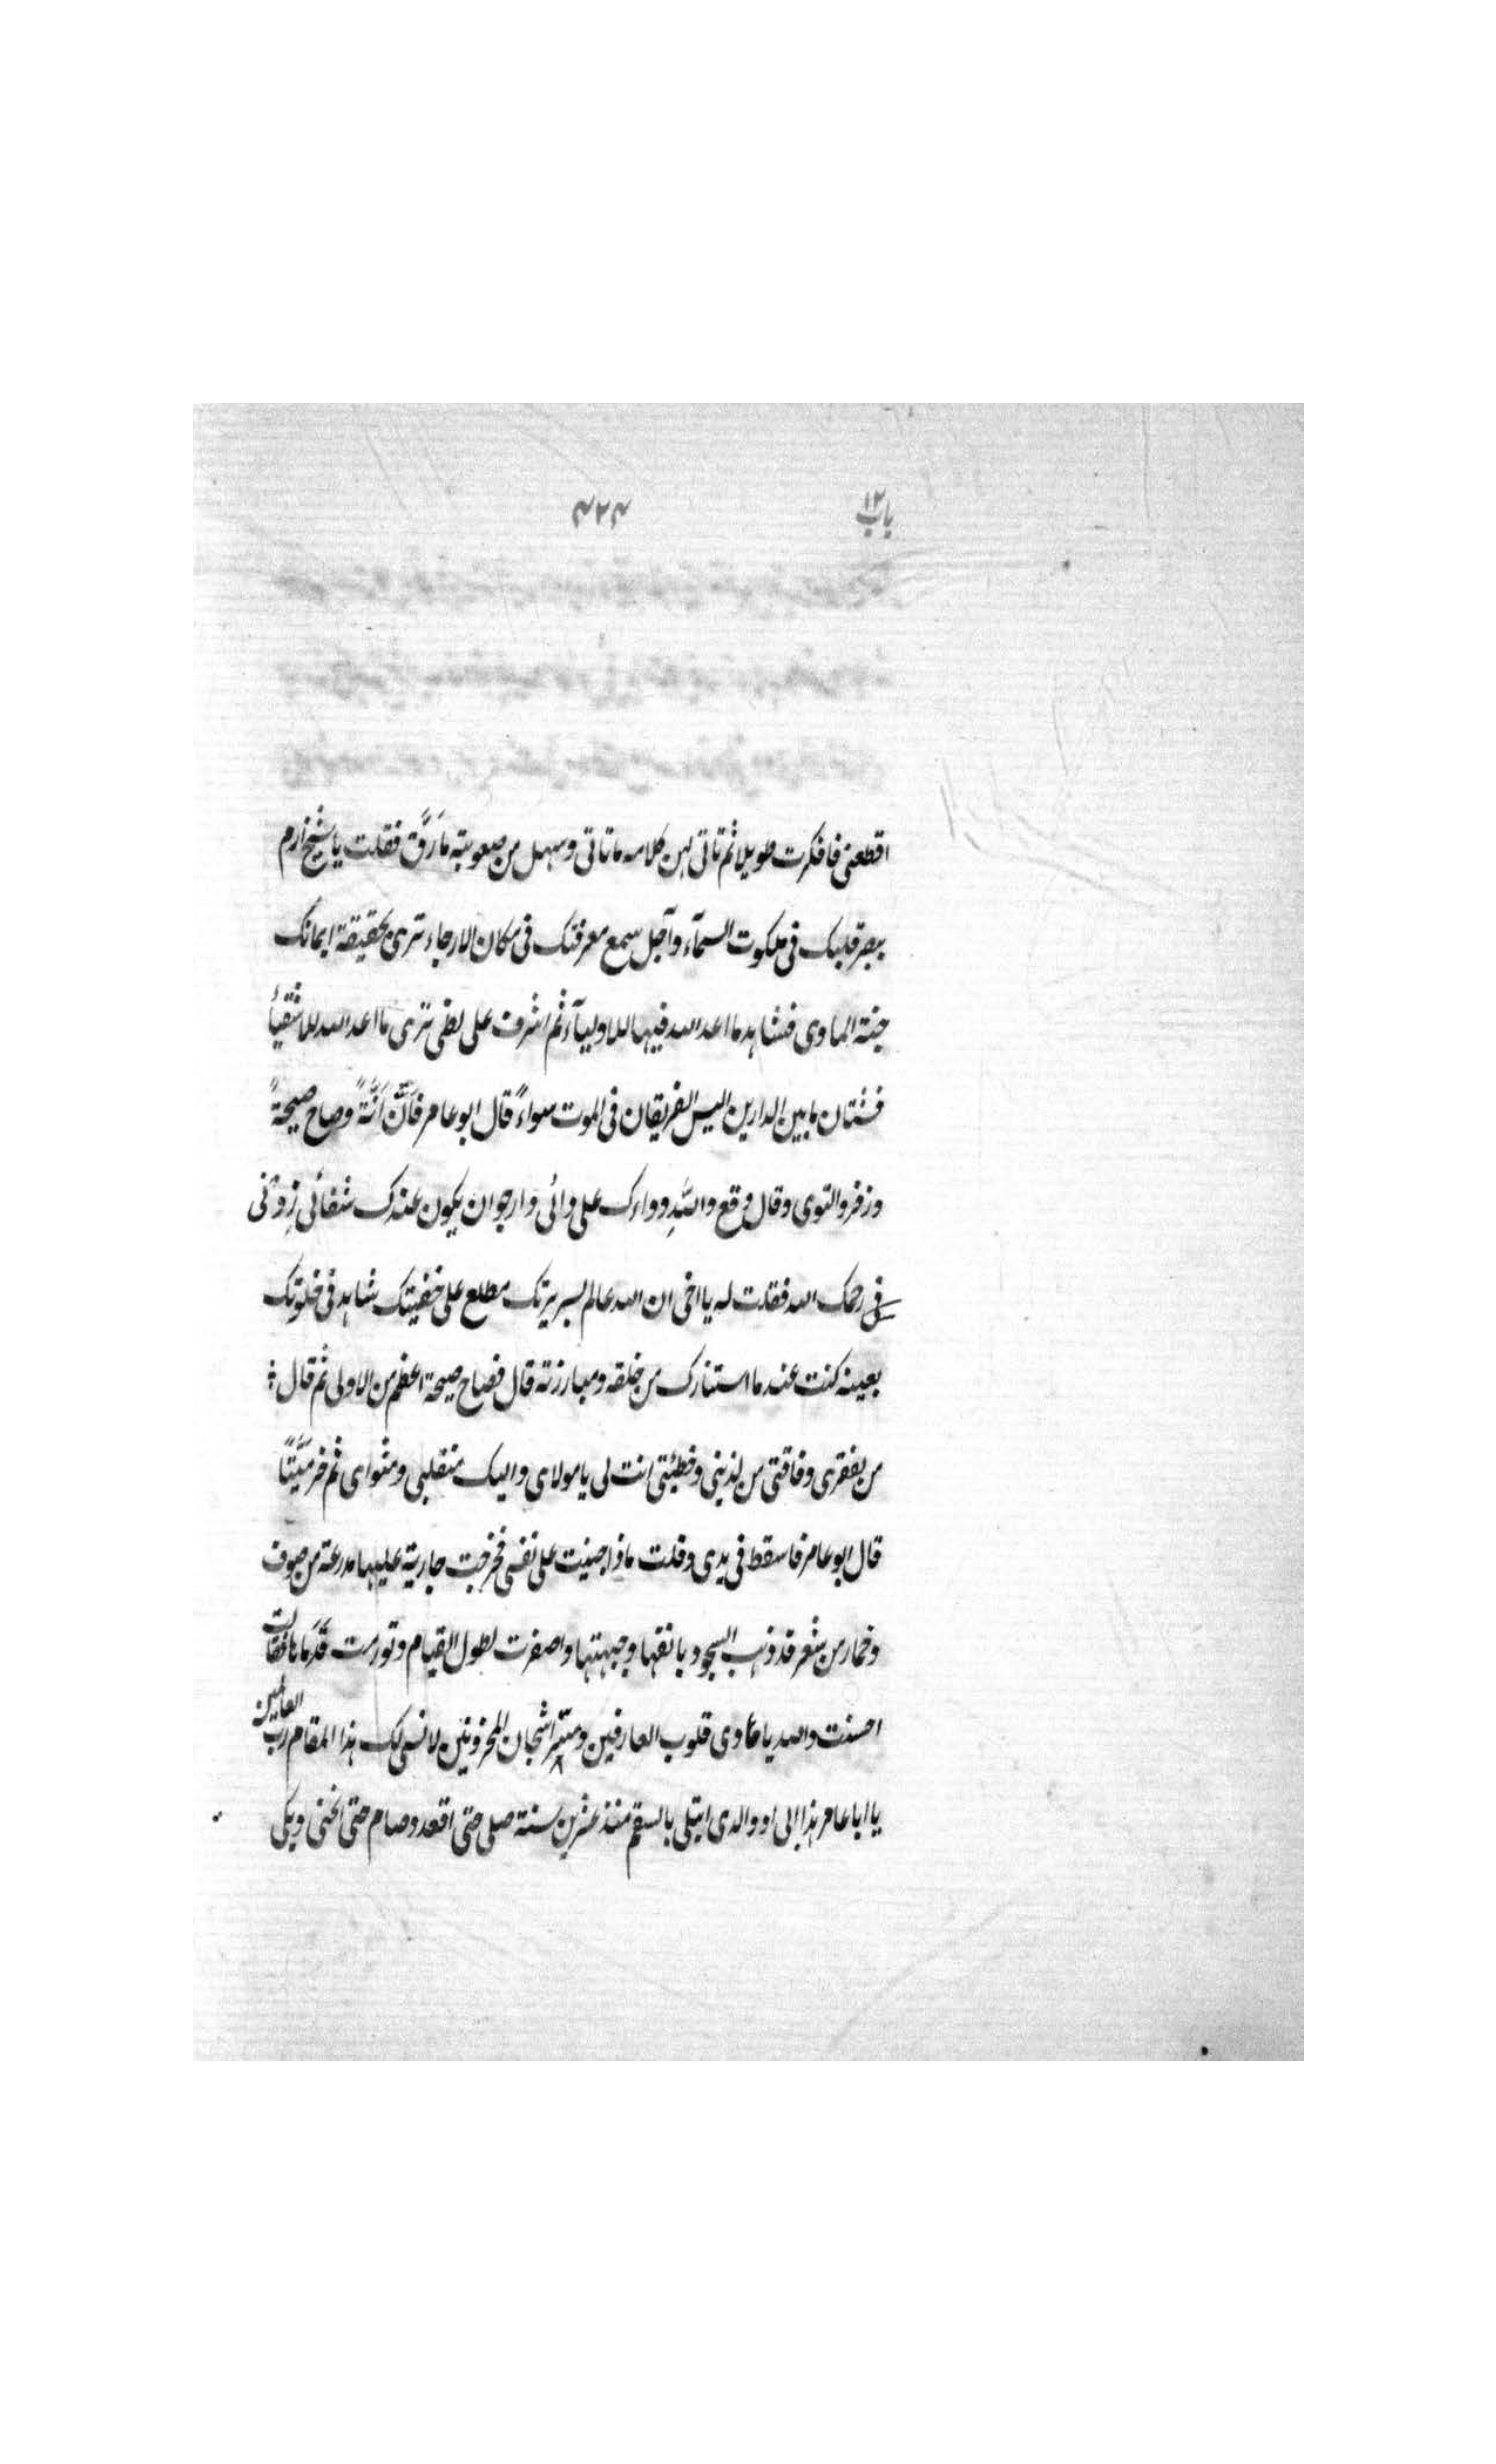 باب ١٢
٤٢٤
اقطعنى فافكرت طويلا ثم تاتى لبن كلامه ماتاتى وسهل من صعوبته مَارَقَّ فقلت ياشيخ ارم
ببصر قلبك فى ملكوت السمآء وآجل سمع معرفتك فى سكان الارجاء ترى بحقيقة ايمانك
جنة الماوى فتشاهد ما اعد الله فيها للاوليآء ثم اشرف على لظى ترى ما اعد الله للاشقيأ
فشتان مابين الدارين اليس الفريقان فى الموت سواءً قال ابو عامر فَاَنَّ اَنَّةً وصاح صيحةً
وزفر والتوى وقال وقع واللهِ دواءك على دائى وارجو ان يكون عندك شفائى زِدْنى
رحمك الله فقلت له يا اخى ان الله عالم بسريرتك مطلع على خفيتك شاهد فى خلوتك
بعينه كنت عند ما استتارك من خلقه ومبارزته قال فصاح صيحة اعظم من الاولى ثم قال
من بفقرى وفاقتى من لذنبى وخطيئتى انت لى يامولاى واليك منقلبى ومثواى ثم خر مَيّتًا
قال ابو عامر فاسقط فى يدى وقلت ماذا جنيت على نفسى فخرجت جارية عليها مدرعة من صوف
وخمار من شعر قد ذهب السجود بانفها وجبهتها واصفرت لطول القيام وتورمت قَدَمَاها فقالت
احسنت والله ياحادى قلوب العارفين ومثير اشجان المحزونين لانسى لك هذا المقام رب العالمين
يا ابا عامر هذا والدى ابتلى بالسقم منذ عشرين سنة صلى حتى اقعد وصام حتى انحنى وبكى